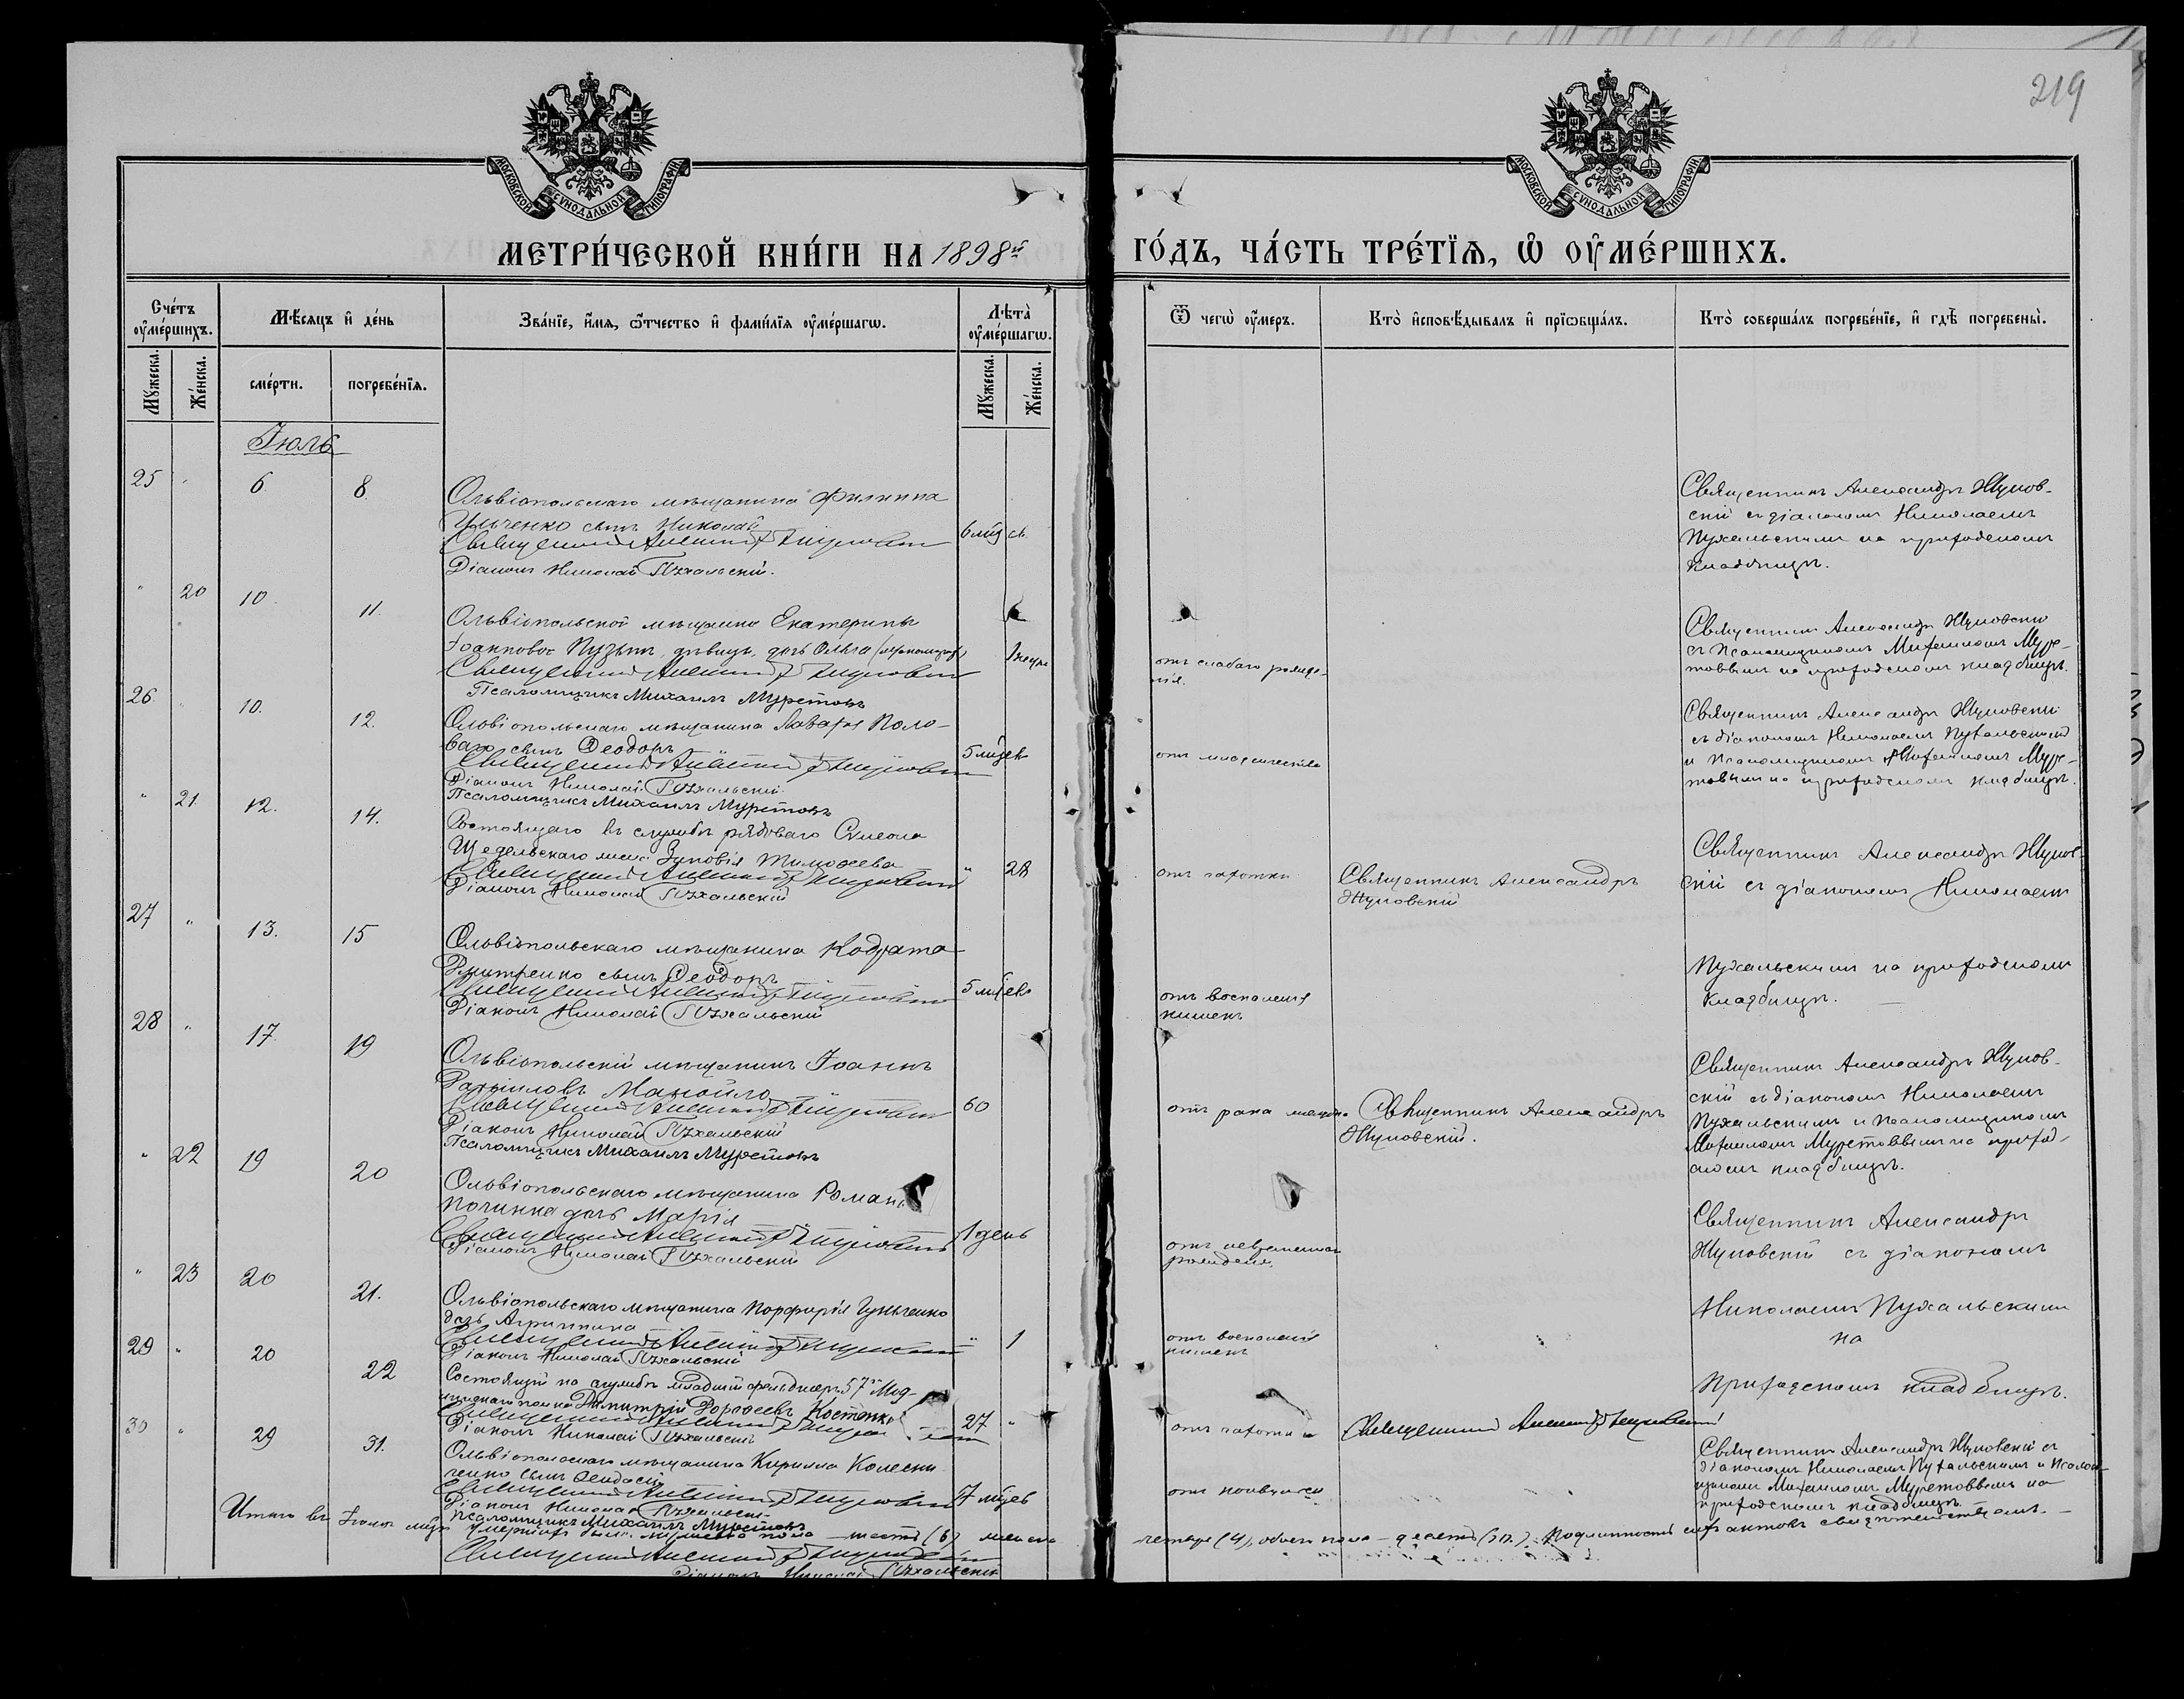 219
МОСКОВСКОЙ СѴНОДАЛЬНОЙ ТИПОГРАФІИ
МОСКОВСКОЙ СѴНОДАЛЬНОЙ ТИПОГРАФІИ
МЕТРИ́ЧЕСКОЙ КНИ́ГИ НА 1898й ГО́ДЪ, ЧА́СТЬ ТРЕ́ТЇѦ, Ѡ҆ ОУ҆МЕ́РШИХЪ.
Сче́тъ оу҆ме́ршихъ.
Мѣ́сѧцъ и҆ де́нь
Зва́нїе, и҆́мѧ, ѻ҆́тчество и҆ фами́лїѧ оу҆ме́ршагѡ.
Лѣ̑та̀ оу҆ме́ршагѡ.
Ѿ чегѡ̀ оу҆́меръ.
Кто̀ и҆сповѣ́дывалъ и҆ прїѡбща́лъ.
Кто̀ соверша́лъ погребе́нїе, и҆ гдѣ̀ погребены̀.
Мꙋ́жеска.
Же́нска.
сме́рти.
погребе́нїѧ.
Мꙋ́жеска.
Же́нска.
Іюль
25 " 6 8.
Ольвіопольскаго мѣщанина Филиппа
Ильченко сынъ Николай
6 мѣс.
Священникъ Александръ Жуковскій
Діаконъ Николай Пухальскій.
Священникъ Александръ Жуков-
скій съ діакономъ Николаемъ
Пухальскимъ на приходскомъ
кладбищѣ.
" 20 10. 11.
Ольвіопольской мѣщанки Екатерины
Іоанновой Пузынъ, дѣвицы, дочь Ольга
Священникъ Александръ Жуковскій
Псаломщикъ Михаилъ Муретовъ
отъ слабаго рожде-
нія.
Священникъ Александръ Жуковскій
съ Псаломщикомъ Михаиломъ Муре-
товымъ на приходскомъ кладбищѣ.
26 " 10. 12.
Ольвіопольскаго мѣщанина Лазаря Поло-
ваго сынъ Ѳеодоръ
5 мѣс.
Священникъ Александръ Жуковскій
Діаконъ Николай Пухальскій.
Псаломщикъ Михаилъ Муретовъ
отъ младенческой
Священникъ Александръ Жуковскій
съ діакономъ Николаемъ Пухальскимъ
и Псаломщикомъ Михаиломъ Муре-
товымъ на приходскомъ кладбищѣ.
" 21. 12. 14.
Состоящаго въ службѣ рядоваго Симеона
Щедельскаго жена Зиновія Тимоѳеева
" 28
Священникъ Александръ Жуковскій
Діаконъ Николай Пухальскій
отъ чахотки
Священникъ Александръ
Жуковскій
Священникъ Александръ Жуков-
скій съ діакономъ Николаемъ
27 " 13. 15
Ольвіопольскаго мѣщанина Кодрата
Дмитренко сынъ Ѳеодоръ
5 мѣс.
Священникъ Александръ Жуковскій
Діаконъ Николай Пухальскій
отъ воспаленія
кишекъ
Пухальскимъ на приходскомъ
кладбищѣ.
28 " 17. 19
Ольвіопольскій мѣщанинъ Іоаннъ
Даніиловъ Манойло
60
Священникъ Александръ Жуковскій
Діаконъ Николай Пухальскій
Псаломщикъ Михаилъ Муретовъ
отъ рака
Священникъ Александръ
Жуковскій.
Священникъ Александръ Жуков-
скій съ діакономъ Николаемъ
Пухальскимъ и Псаломщикомъ
Михаиломъ Муретовымъ на приход-
скомъ кладбищѣ.
" 22 19 20
Ольвіопольскаго мѣщанина Романа
Починка дочь Марія
1 день
Священникъ Александръ Жуковскій
Діаконъ Николай Пухальскій
рожденія.
Священникъ Александръ
Жуковскій съ діакономъ
" 23 20 21.
Ольвіопольскаго мѣщанина Порфирія
дочь Агриппина
" 1
Священникъ Александръ Жуковскій
Діаконъ Николай Пухальскій
отъ воспаленія
кишекъ
Николаемъ Пухальскимъ
на
29 " 20 22
Состоящій на службѣ младшій фельдшеръ 57го Мод-
линскаго полка Димитрій Дороѳеевъ Костенко
27 "
Священникъ Александръ
Діаконъ Николай Пухальскій
отъ чахотки
Священникъ Александръ Жуковскій
Приходскомъ кладбищѣ.
30 " 29 31.
Ольвіопольскаго мѣщанина Кирилла Колесни-
ченко сынъ Ѳеодосій
7 мѣс.
Священникъ Александръ Жуковскій
Діаконъ Николай Пухальскій
Псаломщикъ Михаилъ Муретовъ
Священникъ Александръ Жуковскій съ
діакономъ Николаемъ Пухальскимъ и Псалом-
щикомъ Михаиломъ Муретовымъ на
приходскомъ кладбищѣ.
Итого въ Іюлѣ мѣс. умершихъ было: мужеска пола — шесть (6) женска четыре (4), обоего пола — десять (10.) Подлинность сихъ актовъ свидѣтельствуемъ. —
Священникъ Александръ Жуковскій
Діаконъ Николай Пухальскій